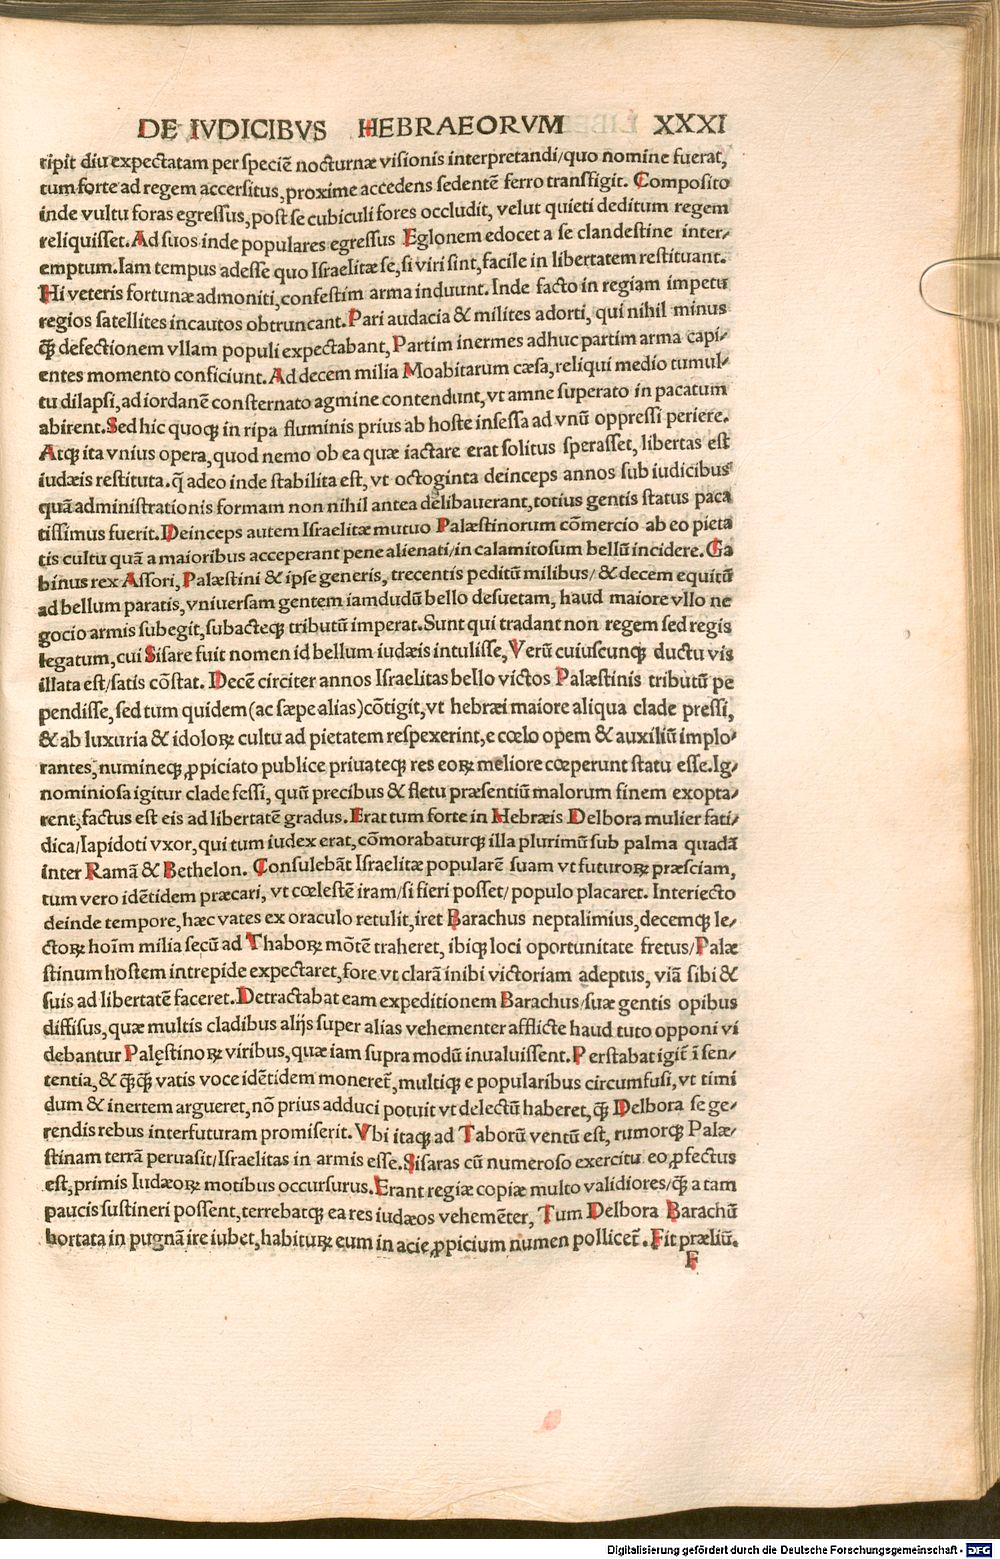 DE IVDICIBVS HEBRAEORVM XXXI
ripit diu expectatam per speciē nocturnæ visionis interpretandi/quo nomine fuerat,
tum forte ad regem accersitus, proxime accedens sedentē ferro transfigit. Composito
inde vultu foras egressus, post se cubiculi fores occludit, velut quieti deditum regem
reliquisset. Ad suos inde populares egressus Eglonem edocet a se clandestine inter⸗
emptum. Iam tempus adesse quo Israelitæ se, si viri sint, facile in libertatem restituant.
Hi veteris fortunæ admoniti, confestim arma induunt. Inde facto in regiam impetu
regios satellites incautos obtruncant. Pari audacia & milites adorti, qui nihil minus
ꝙ̄ defectionem vllam populi expectabant, Partim inermes adhuc partim arma capi⸗
entes momento conficiunt. Ad decem milia Moabitarum cæsa, reliqui medio tumul⸗
tu dilapsi, ad iordanē consternato agmine contendunt, vt amne superato in pacatum
abirent. Sed hic quoqꝫ in ripa fluminis prius ab hoste insessa ad vnū oppressi periere.
Atqꝫ ita vnius opera, quod nemo ob ea quæ iactare erat solitus sperasset, libertas est
iudæis restituta. q̄ adeo inde stabilita est, vt octoginta deinceps annos sub iudicibus
quā administrationis formam non nihil antea delibauerant, totius gentis status paca
tissimus fuerit. Deinceps autem Israelitæ mutuo Palæstinorum cōmercio ab eo pieta
tis cultu quā a maioribus acceperant pene alienati/in calamitosum bellū incidere. Ga
binus rex Assori, Palæstini & ipse generis, trecentis peditū milibus/& decem equitū
ad bellum paratis, vniuersam gentem iamdudū bello desuetam, haud maiore vllo ne
gocio armis subegit, subacteqꝫ tributū imperat. Sunt qui tradant non regem sed regis
legatum, cui Sisare fuit nomen id bellum iudæis intulisse, Verū cuiuscunqꝫ ductu vis
illata est/satis cōstat. Decē circiter annos Israelitas bello victos Palæstinis tributū pe
pendisse, sed tum quidem (ac sæpe alias) cōtigit, vt hebræi maiore aliqua clade pressi,
& ab luxuria & idoloꝝ cultu ad pietatem respexerint, e cœlo opem & auxiliū implo⸗
rantes, numineqꝫ ꝓpiciato publice priuateqꝫ res eoꝝ meliore cœperunt statu esse. Ig⸗
nominiosa igitur clade fessi, quū precibus & fletu præsentiū malorum finem exopta⸗
rent, factus est eis ad libertatē gradus. Erat tum forte in Hebræis Delbora mulier fati⸗
dica/Iapidoti vxor, qui tum iudex erat, cōmorabaturqꝫ illa plurimū sub palma quadā
inter Ramā & Bethelon. Consulebāt Israelitæ popularē suam vt futuroꝝ præsciam,
tum vero idētidem præcari, vt cœlestē iram/si fieri posset/populo placaret. Interiecto
deinde tempore, hæc vates ex oraculo retulit, iret Barachus neptalimius, decemqꝫ le⸗
ctoꝝ hoīm milia secū ad Thaboꝝ mōtē traheret, ibiqꝫ loci oportunitate fretus/Palæ
stinum hostem intrepide expectaret, fore vt clarā inibi victoriam adeptus, viā sibi &
suis ad libertatē faceret. Detractabat eam expeditionem Barachus/suæ gentis opibus
diffisus, quæ multis cladibus alijs super alias vehementer afflicte haud tuto opponi vi
debantur Palęstinoꝝ viribus, quæ iam supra modū inualuissent. Perstabat igit̄ ī sen⸗
tentia, & ꝙ̄ꝙ̄ vatis voce idētidem moneret̄, multiqꝫ e popularibus circumfusi, vt timi
dum & inertem argueret, nō prius adduci potuit vt delectū haberet, ꝙ̄ Delbora se ge⸗
rendis rebus interfuturam promiserit. Vbi itaqꝫ ad Taborū ventū est, rumorqꝫ Palæ⸗
stinam terrā peruasit/Israelitas in armis esse. Sisaras cū numeroso exercitu eo ꝓfectus
est, primis Iudæoꝝ motibus occursurus. Erant regiæ copiæ multo validiores/ꝙ̄ a tam
paucis sustineri possent, terrebatqꝫ ea res iudæos vehemēter, Tum Delbora Barachū
hortata in pugnā ire iubet, habituꝝ eum in acie ꝓpicium numen pollicet̄. Fit præliū.
F
Digitalisierung gefördert durch die Deutsche Forschungsgemeinschaft - DFG